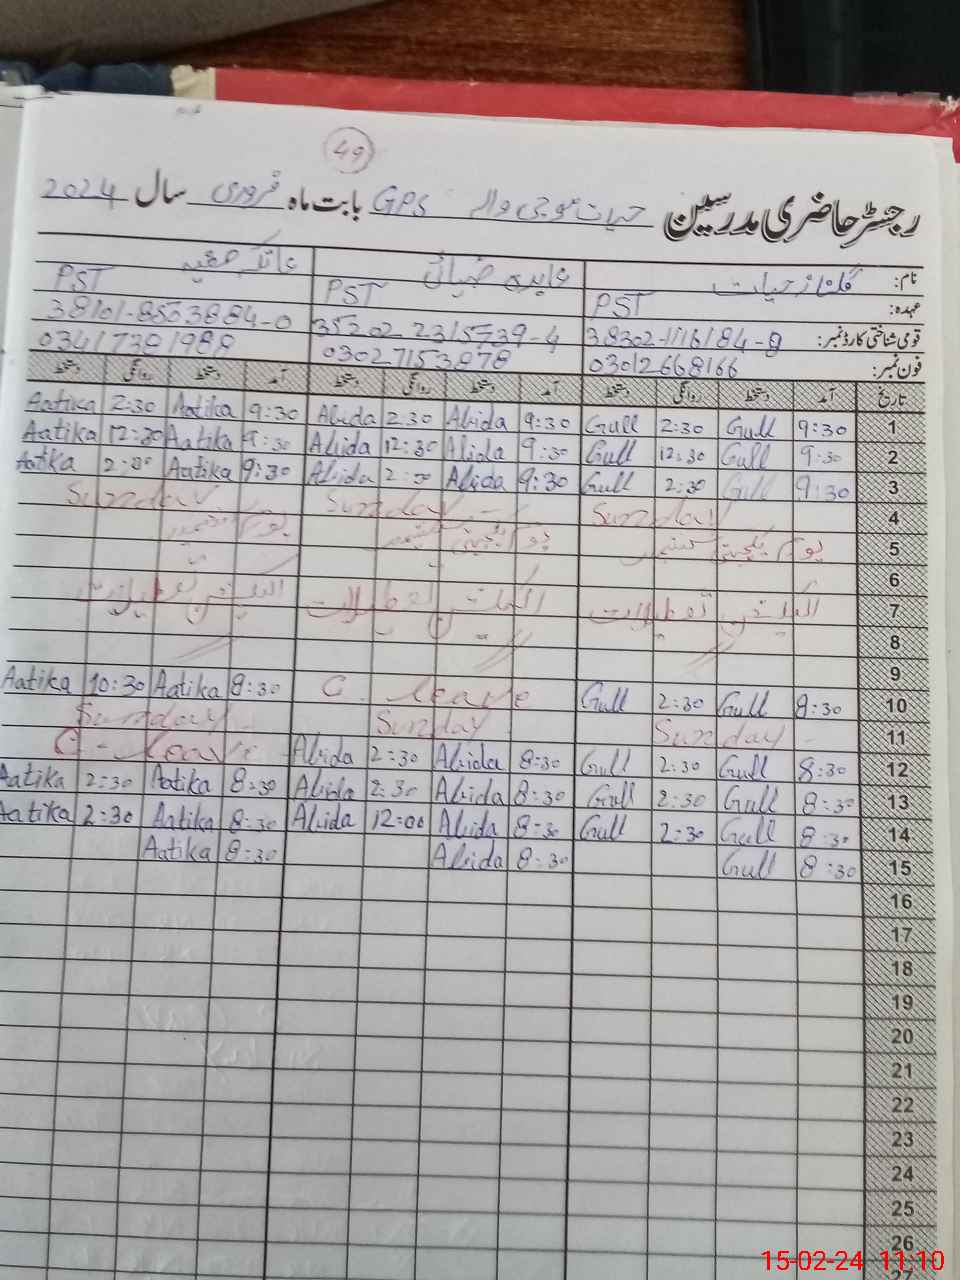 49
رجسٹر حاضری مدرسین حیات موجی والہ GPS بابت ماہ فروری سال 2024
نام: گلناز حیات عابدہ ضیائی عاتکہ صفیہ
عہدہ: PST PST PST
قومی شناختی کارڈ نمبر: 35202 2315739-4
فون نمبر: 03012668166 03027153878 03417381988
تاریخ آمد دستخط روانگی دستخط آمد دستخط روانگی دستخط آمد دستخط روانگی دستخط
1 9:30 Gull 2:30 Gull 9:30 Abida 2:30 Abida 9:30 Aatika 2:30 Aatika
2 9:30 Gull 12:30 Gull 9:30 Abida 12:30 Abida 9:30 Aatika 12:30 Aatika
3 9:30 Gull 2:30 Gull 9:30 Abida 2:00 Abida 9:30 Aatika 2:00 Aatika
4 Sunday Sunday Sunday
5 یوم یکجہتی کشمیر یوم یکجہتی کشمیر یوم
6
7 الیکشن تعطیلات الیکشن تعطیلات الیکشن تعطیلات
8
9
10 8:30 Gull 2:30 Gull C. leave 8:30 Aatika 10:30 Aatika
11 Sunday Sunday Sunday
12 8:30 Gull 2:30 Gull 8:30 Abida 2:30 Abida C - leave
13 8:30 Gull 2:30 Gull 8:30 Abida 2:30 Abida 8:30 Aatika 2:30 Aatika
14 8:30 Gull 2:30 Gull 8:30 Abida 12:00 Abida 8:30 Aatika 2:30 Aatika
15 8:30 Gull 8:30 Abida 8:30 Aatika
16
17
18
19
20
21
22
23
24
25
26
27
15-02-24 11:10